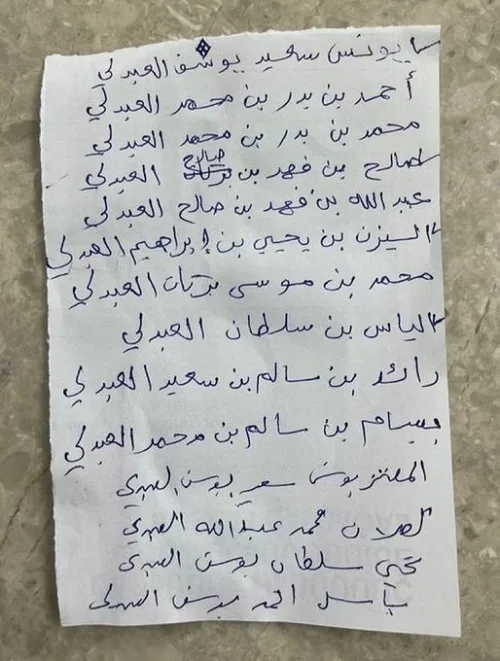 يونس سعيد يوسف العبدلي
أحمد بن بدر بن محمد العبدلي
محمد بن بدر بن محمد العبدلي
صالح بن فهد بن صالح العبدلي
عبدالله بن فهد بن صالح العبدلي
اليزن بن يحيى بن إبراهيم العبدلي
محمد بن موسى بركات العبدلي
الياس بن سلطان العبدلي
رائد بن سالم بن سعيد العبدلي
بسام بن سالم بن محمد العبدلي
المعتز يونس سعيد يوسف العبدلي
محمد عبدالله العبدلي
سلطان يوسف العبدلي
ياسر احمد يوسف العبدلي